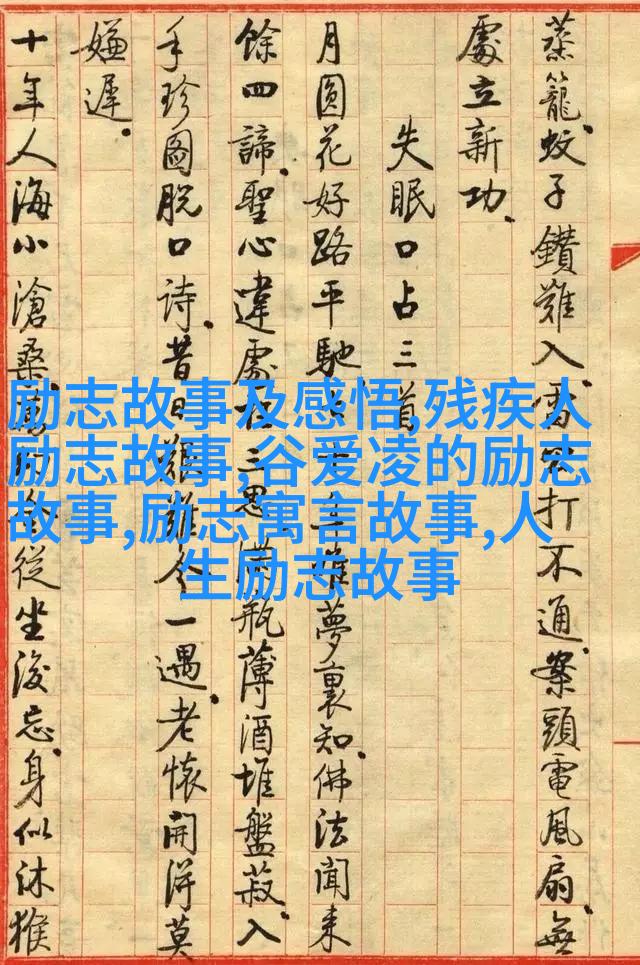 蒸籠.蚊子鑽難入.雷打不通.案頭電風扇.無
處立新功.
失眠口占三首
月圓花好路平馳難夢裏知.佛法聞來
餘四諦.聖心違處在三思.滿瓶薄酒堆盤菽.入
手珍圖脫口詩.昔日艱難今一遇.老懷開得莫
嫌遲.
十年人海小滄桑.萬從坐後忘.身似沐猴
励志故事及感悟,残疾人
励志故事,谷爱凌的励志
故事,励志寓言故事,人
生励志故事